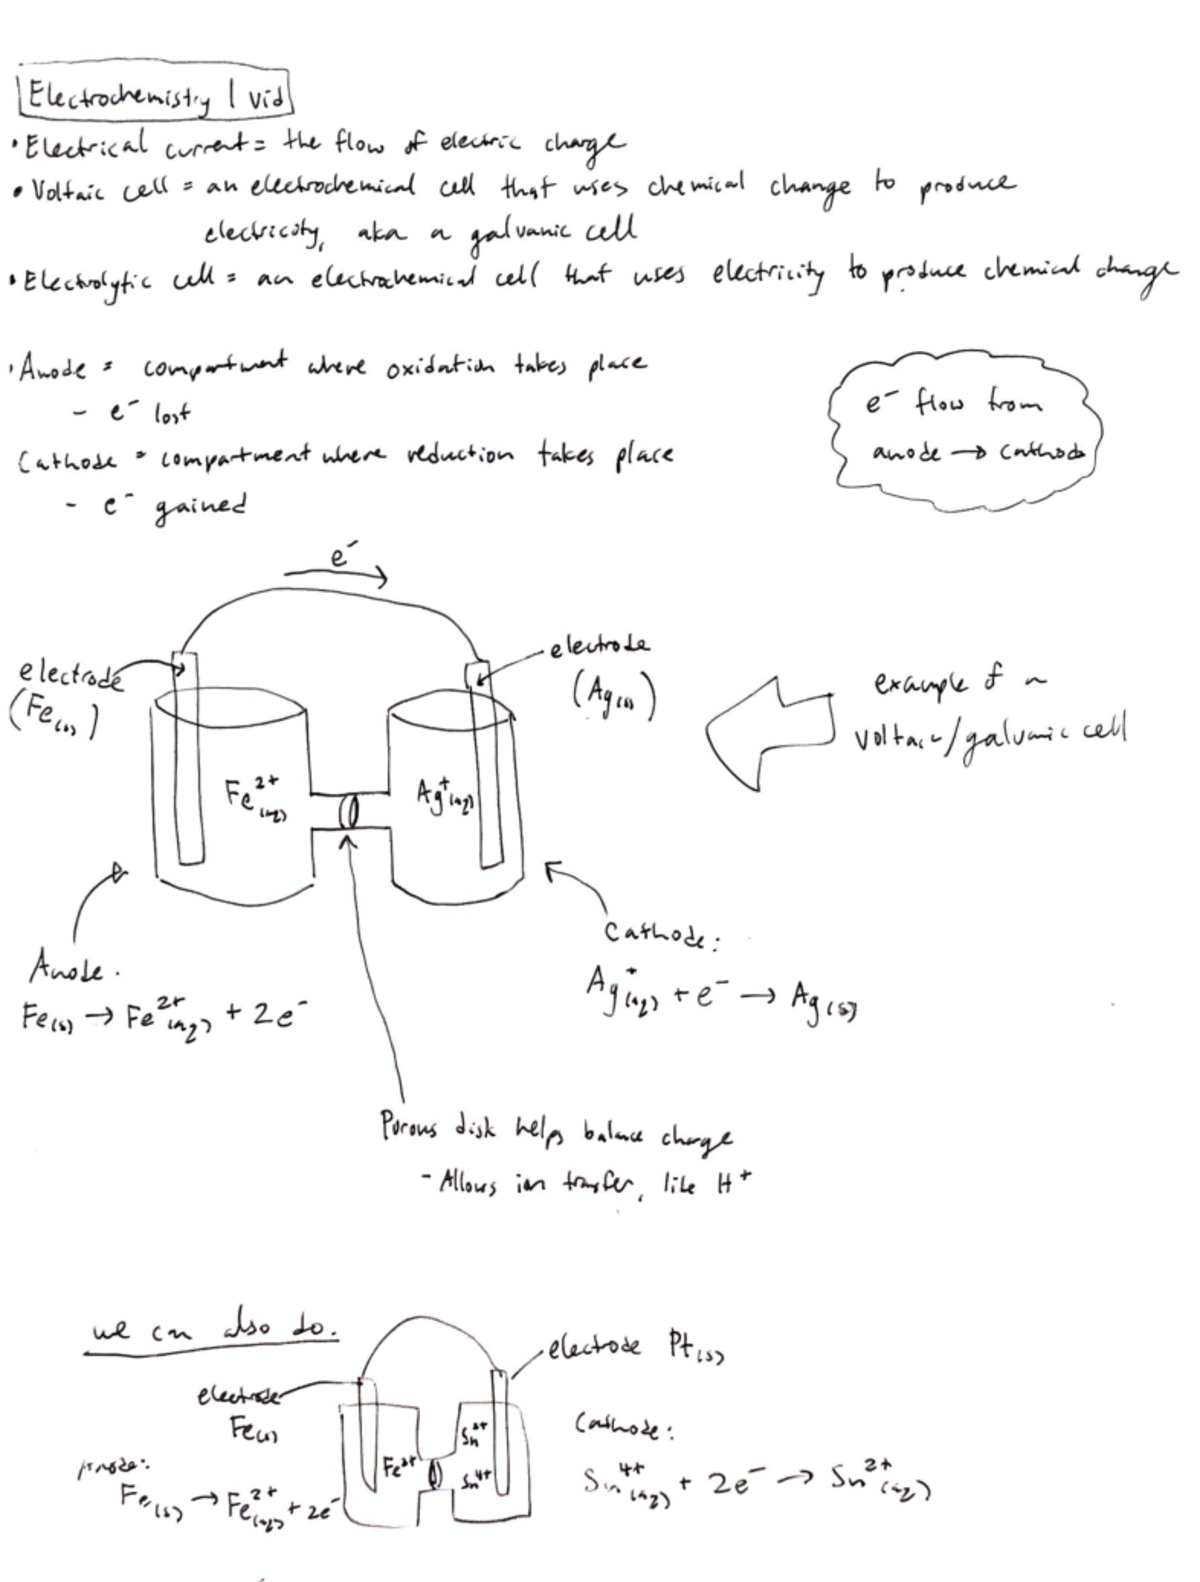 Electrochemistry 1 vid
• Electrical current = the flow of electric charge
• Voltaic cell = an electrochemical cell that uses chemical change to produce
electricity, aka a galvanic cell
• Electrolytic cell = an electrochemical cell that uses electricity to produce chemical change
• Anode = compartment where oxidation takes place
- e⁻ lost
Cathode = compartment where reduction takes place
- e⁻ gained
e⁻ flow from
anode → cathode
e⁻
electrode
(Fe(s))
electrode
(Ag(s))
example of a
voltaic/galvanic cell
Fe²⁺(aq)
Ag⁺(aq)
Anode.
Fe(s) → Fe²⁺(aq) + 2e⁻
Cathode:
Ag⁺(aq) + e⁻ → Ag(s)
Porous disk helps balance charge
- Allows ion transfer, like H⁺
we can also do.
electrode Pt(s)
electrode
Fe(s)
Fe²⁺
Sn²⁺
Sn⁴⁺
Anode:
Fe(s) → Fe²⁺(aq) + 2e⁻
Cathode:
Sn⁴⁺(aq) + 2e⁻ → Sn²⁺(aq)